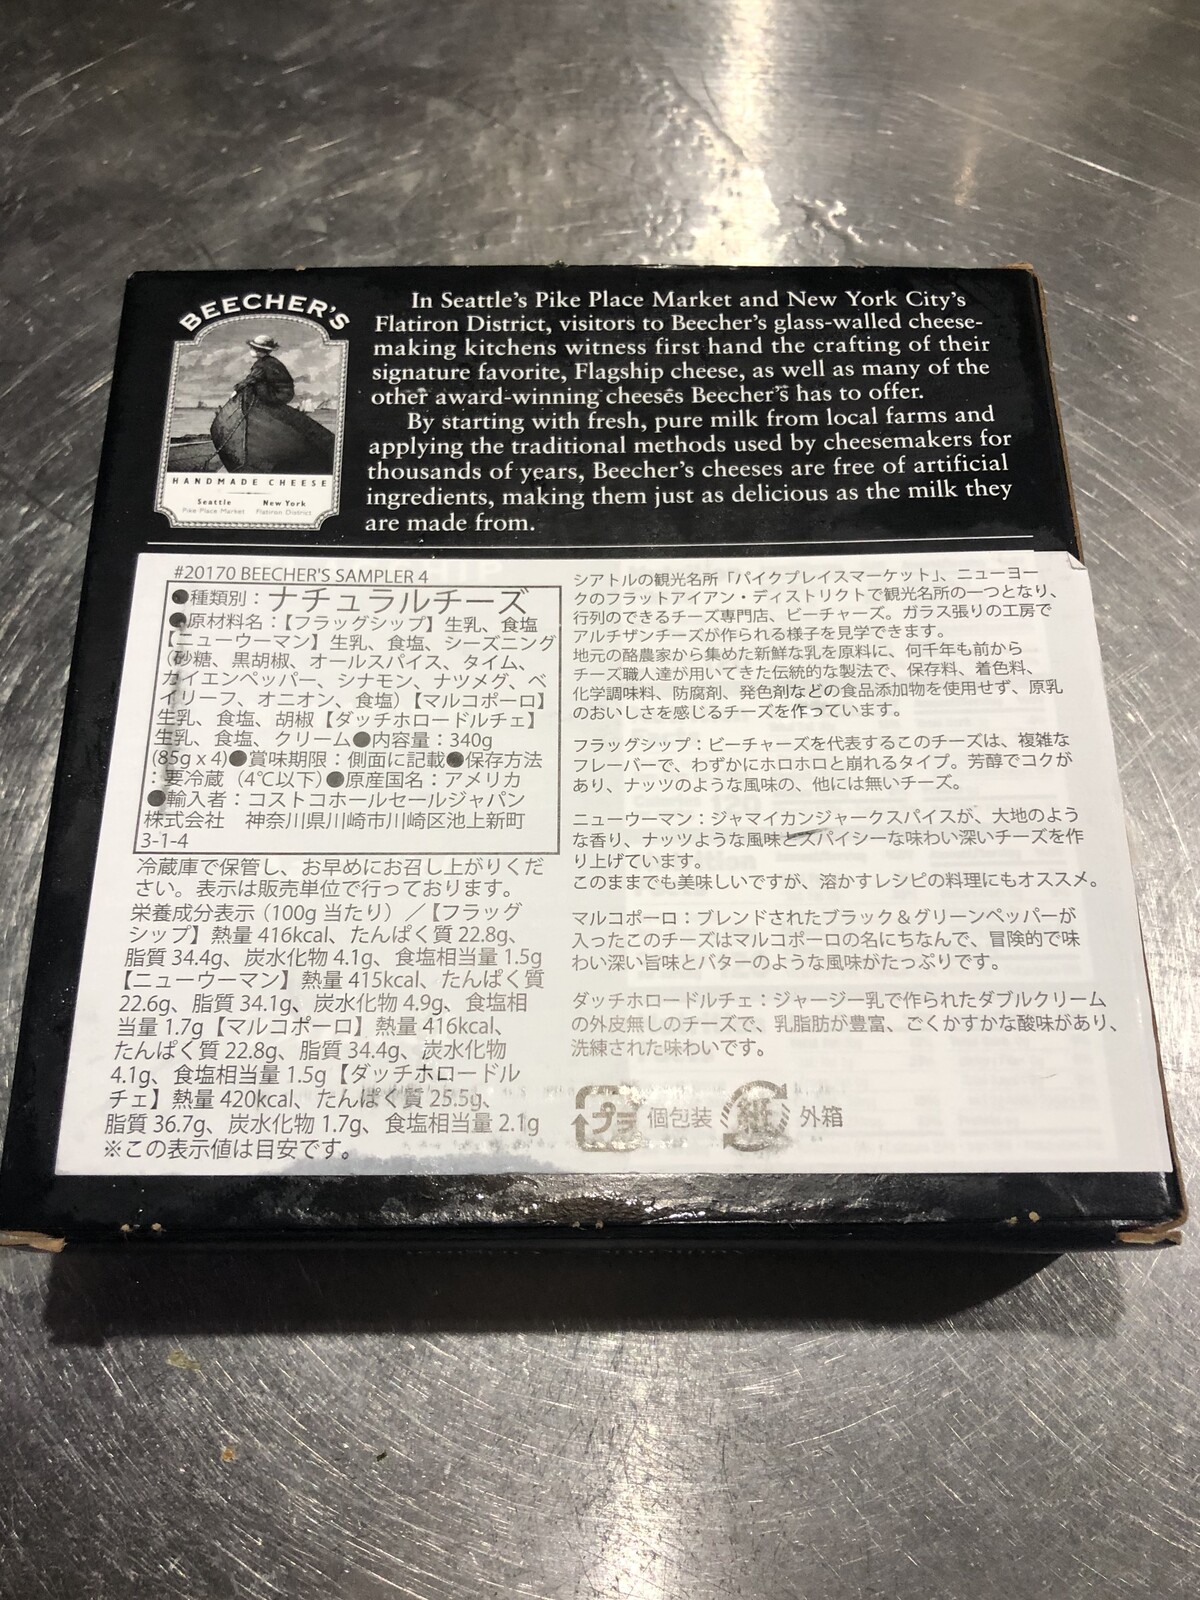 BEECHER'S
HANDMADE CHEESE
Seattle New York
Pike Place Market Flatiron District
In Seattle's Pike Place Market and New York City's
Flatiron District, visitors to Beecher's glass-walled cheese-
making kitchens witness first hand the crafting of their
signature favorite, Flagship cheese, as well as many of the
other award-winning cheeses Beecher's has to offer.
By starting with fresh, pure milk from local farms and
applying the traditional methods used by cheesemakers for
thousands of years, Beecher's cheeses are free of artificial
ingredients, making them just as delicious as the milk they
are made from.
#20170 BEECHER'S SAMPLER 4
●種類別：ナチュラルチーズ
●原材料名：【フラッグシップ】生乳、食塩
【ニューウーマン】生乳、食塩、シーズニング
（砂糖、黒胡椒、オールスパイス、タイム、
カイエンペッパー、シナモン、ナツメグ、ベ
イリーフ、オニオン、食塩）【マルコポーロ】
生乳、食塩、胡椒【ダッチホロードルチェ】
生乳、食塩、クリーム●内容量：340g
(85g x 4)●賞味期限：側面に記載●保存方法
：要冷蔵（4℃以下）●原産国名：アメリカ
●輸入者：コストコホールセールジャパン
株式会社　神奈川県川崎市川崎区池上新町
3-1-4
冷蔵庫で保管し、お早めにお召し上がりくだ
さい。表示は販売単位で行っております。
栄養成分表示（100g 当たり）／【フラッグ
シップ】熱量 416kcal、たんぱく質 22.8g、
脂質 34.4g、炭水化物 4.1g、食塩相当量 1.5g
【ニューウーマン】熱量 415kcal、たんぱく質
22.6g、脂質 34.1g、炭水化物 4.9g、食塩相
当量 1.7g【マルコポーロ】熱量 416kcal、
たんぱく質 22.8g、脂質 34.4g、炭水化物
4.1g、食塩相当量 1.5g【ダッチホロードル
チェ】熱量 420kcal、たんぱく質 25.5g、
脂質 36.7g、炭水化物 1.7g、食塩相当量 2.1g
※この表示値は目安です。
シアトルの観光名所「パイクプレイスマーケット」、ニューヨー
クのフラットアイアン・ディストリクトで観光名所の一つとなり、
行列のできるチーズ専門店、ビーチャーズ。ガラス張りの工房で
アルチザンチーズが作られる様子を見学できます。
地元の酪農家から集めた新鮮な乳を原料に、何千年も前から
チーズ職人達が用いてきた伝統的な製法で、保存料、着色料、
化学調味料、防腐剤、発色剤などの食品添加物を使用せず、原乳
のおいしさを感じるチーズを作っています。
フラッグシップ：ビーチャーズを代表するこのチーズは、複雑な
フレーバーで、わずかにホロホロと崩れるタイプ。芳醇でコクが
あり、ナッツのような風味の、他には無いチーズ。
ニューウーマン：ジャマイカンジャークスパイスが、大地のよう
な香り、ナッツような風味とスパイシーな味わい深いチーズを作
り上げています。
このままでも美味しいですが、溶かすレシピの料理にもオススメ。
マルコポーロ：ブレンドされたブラック＆グリーンペッパーが
入ったこのチーズはマルコポーロの名にちなんで、冒険的で味
わい深い旨味とバターのような風味がたっぷりです。
ダッチホロードルチェ：ジャージー乳で作られたダブルクリーム
の外皮無しのチーズで、乳脂肪が豊富、ごくかすかな酸味があり、
洗練された味わいです。
プラ 個包装 紙 外箱